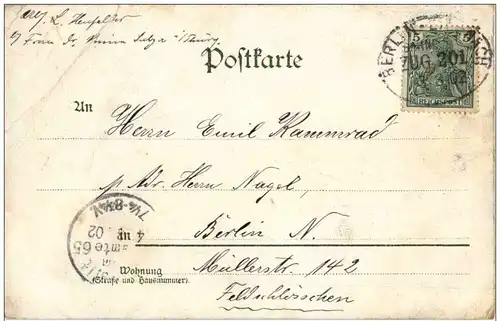 L. Henfelder
Frau Dr.
Postkarte
An
Herrn Emil Kammrad
p. Adr. Herrn Nagel,
Berlin N.
in
Wohnung
(Straße und Hausnummer)
Müllerstr 142
Feldschlösschen
BERLIN
BAHN
ZUG 201
02
REICHSPOST
7¼-8½V.
02
65